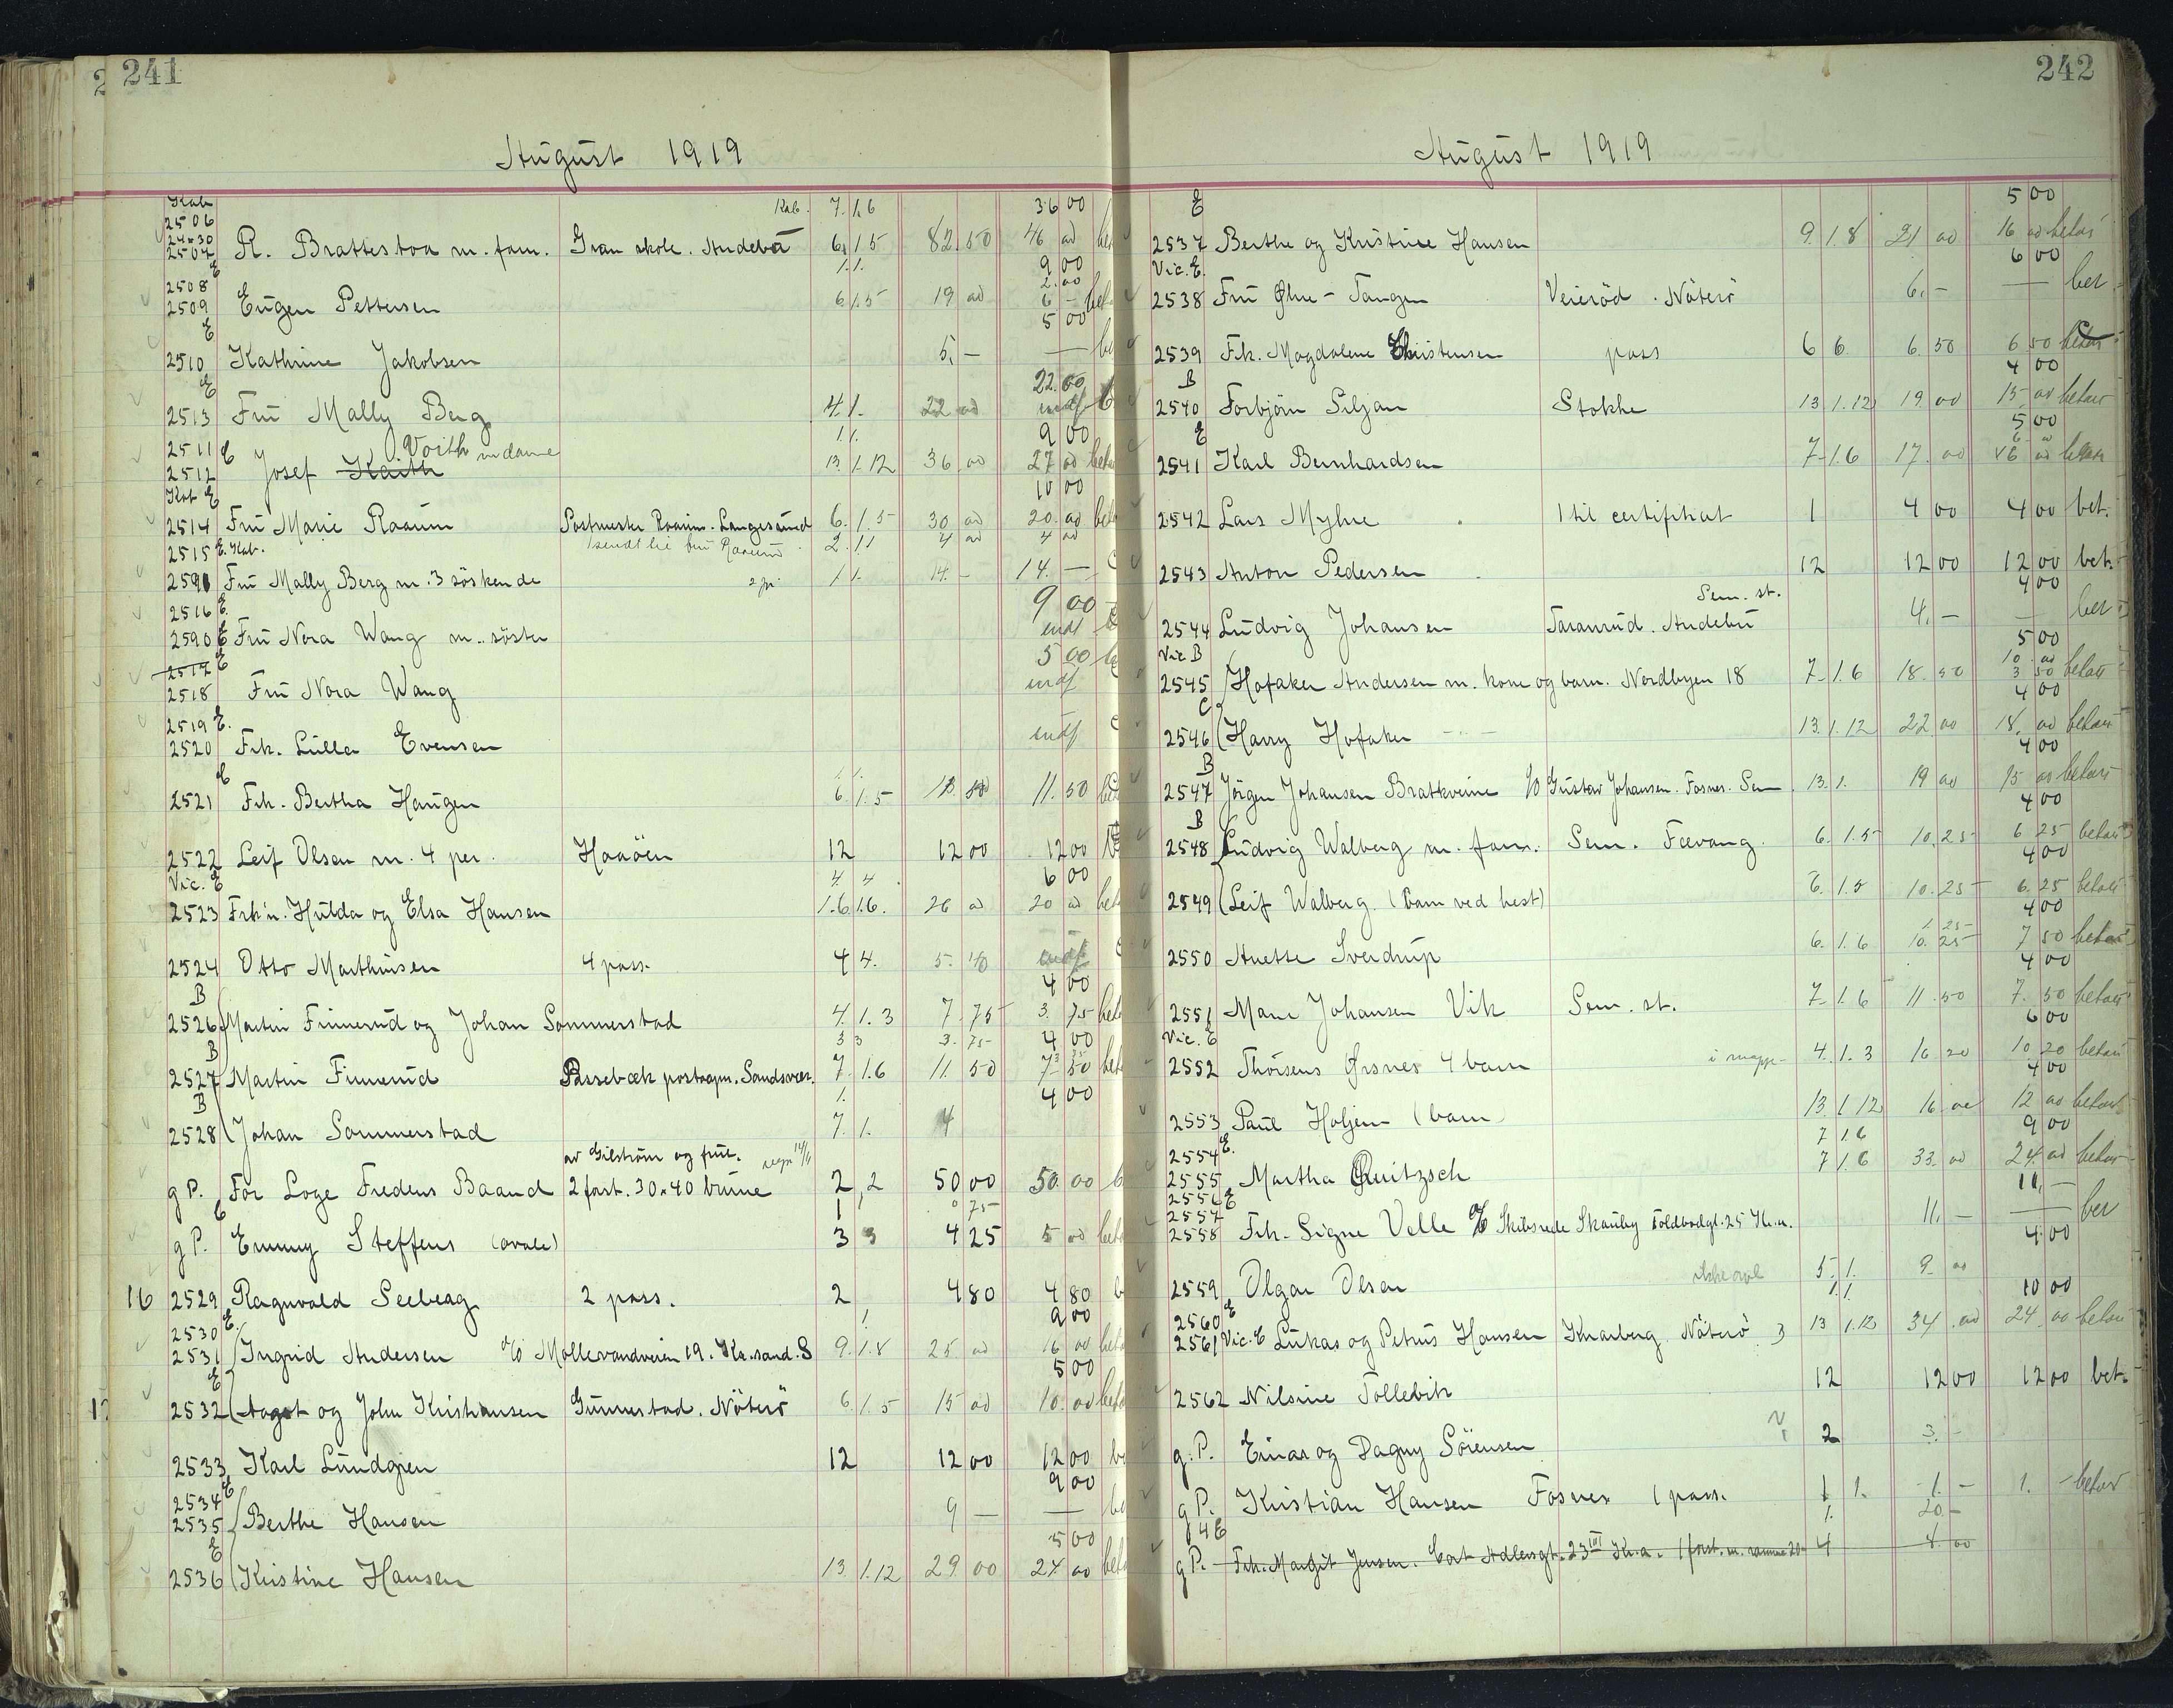 241
August 1919
Kab. Kab. 7. 1.6 36 00
2506
24x30
2507 R. Brattestoa m. fam. Gran skole. Andebu 6. 1.5 82.50 46 00
E 1.1. 9 00
2508 2.00
2509 Eugen Pettersen 6. 1.5 19 00 6 -
E 5 00
2510 Kathrine Jakobsen 5. - —
E 22.00
2513 Fru Mally Berg 4. 1. 22 00 indf
2511 E Voith m dame 1.1. 9 00
2512 Josef Kaith 13. 1.12 36 00 27 00
Kab E 10 00
2514 Fru Marie Raaum Postmester Raaum. Langesund 6. 1.5 30 00 20. 00
2515 E. Kab. sendt til fru Raaum 2. 11 4 00 4 00
2591 Fru Mally Berg m. 3 söskende 1 1. 14. - 14. —
2516 E. 9 00
2590 E Fru Nora Wang m. söster indf
2517 E 5 00
2518 Fru Nora Wang indf
2519 E.
2520 Frk. Lulla Evensen indf
E
2521 Frk. Bertha Haugen 6. 1.5 11.50
2522 Leif Olsen m. 4 per. Haaöen 12 12 00 12 00
Vic. E 4. 4 6 00
2523 Frk'n. Hulda og Elsa Hansen 1.6 1.6. 26 00 20 00
2524 Otto Marthinsen 4 pass. 4 4. 5. 40
B 4 00
2526 Martin Finnerud og Johan Sommerstad 4. 1. 3 7. 75 3. 75
B 3 3 3. 75 4 00
2527 Martin Finnerud Passebæk postaapn. Sandsvær. 7. 1.6 11. 50
B 1. 4 00
2528 Johan Sommerstad 7. 1. 4
av Gilström og frue.
g P. For Loge Fredens Baand 2 forst. 30x40 brune 2 2 50 00 50. 00
g P. Emmy Steffens (ovale) 3 3 4 25 5 00
16 2529 Ragnvald Seeberg 2 pass. 2 4 80 4 80
2530 E. 1. 9 00
2531 Ingrid Andersen c/o Møllevandveien 19. Kr.sand. S 9. 1.8 25 00 16 00
E 5 00
2532 Aagot og John Kristiansen Gunnestad. Nöterö 6. 1.5 15 00 10. 00
2533 Karl Lundgren 12 12 00 12 00
2534 E 9 00
2535 Berthe Hansen 9 — —
E 5 00
2536 Kristine Hansen 13. 1.12 29 00 24 00
242
August 1919
E 5 00
2537 Berthe og Kristine Hansen 9. 1.8 21 00 16 00 betalt
Vic. E. 6 00
2538 Fru Øhre - Tangen Veierød. Nöterö 6. - — ber
2539 Frk. Magdalene Christensen pass 6 6 6. 50 6 50 betalt
B 4 00
2540 Torbjörn Siljan Stokke 13. 1.12 19. 00 15 00 betalt
E 5 00
2541 Karl Bernhardsen 7. 1.6 17. 00 betalt
2542 Lars Myhre 1 til certifikat 1 4 00 4 00 bet.
2543 Anton Pedersen 12 12 00 12 00 bet.
Sem. st. 4 00
2544 Ludvig Johansen Taranrud. Andebu 4. - — ber
Vic B 5 00
2545 Hofaker Andersen m. kone og barn. Nordbyen 18 7. 1.6 18. 50 betalt
C 4 00
2546 Harry Hofaker 13. 1.12 22 00 18. 00 betalt
B 4 00
2547 Jörgen Johansen Brattkveine c/o Gustav Johansen. Fosnes. Sem 13. 1. 19 00 15 00 betalt
B 4 00
2548 Ludvig Walberg m. fam. Sem. Fevang 6. 1.5 10. 25 6 25 betalt
4 00
2549 Leif Walberg (barn ved hest) 6. 1.5 10. 25 6. 25 betalt
4 00
2550 Anette Sverdrup 6. 1.6 7 50 betalt
4 00
2551 Marie Johansen Vik Sem. st. 7. 1.6 11. 50 7. 50 betalt
Vic. E 6 00
2552 Thorsens Ørsnes 4 barn i mappe 4. 1.3 16 20 10 20 betalt
4 00
2553 Paul Holjem (barn) 13. 1.12 16 00 12 00 betalt
2554 E. 7 1.6 9 00
2555 Martha Quitzsch 7 1.6 33. 00 24. 00 betalt
2556 E 11. —
2557
2558 Frk. Signe Velle c/o Skibsrede Skauby Toldbodgt. 25 Kr.a. 11. - — ber
4. 00
2559 Olga Olsen 5. 1. 9. 00
2560 E 1. 1. 10 00
2561 Vic. E Lukas og Petrus Hansen Knarberg. Nöterö 13 1.12 34. 00 24. 00 betalt
2562 Nilsine Tollevik 12 12 00 12 00 bet.
g. P. Einar og Dagny Sörensen 2 3. -
g P. Kristian Hansen Fosnes 1 pass. 1 1. 1. - 1. - betalt
1. 20 -
g P. Frk. Margit Jensen. Cort Adlersgt. 23 III Kr.a. 1 forst. m. ramme 20- 4 4. 00